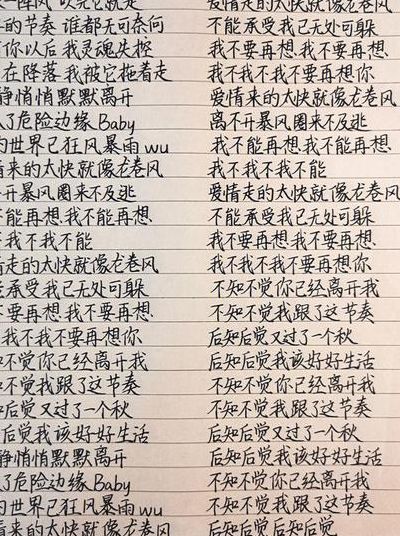 一阵风 吹完它就走
的节奏 谁都无可奈何
你以后我灵魂失控
在降落我被它拖着走
静悄悄默默离开
了危险边缘Baby
的世界已狂风暴雨wu
情来的太快就像龙卷风
开暴风圈来不及逃
能再想我不能再想
我不我不能
情走的太快就像龙卷风
承受我已无处可躲
要再想我不要再想
我不我不要再想你
不觉你已经离开我
不觉我跟了这节奏
后觉又过了一个秋
后觉我该好好生活
静悄悄默默离开
了危险边缘Baby
的世界已狂风暴雨wu
来的太快就像龙卷风
爱情走的太快就像龙卷风
不能承受我已无处可躲
我不要再想我不要再想
我不我不我不要再想你
爱情来的太快就像龙卷风
离不开暴风圈来不及逃
我不能再想我不能再想
我不我不我不能
爱情走的太快就像龙卷风
不能承受我已无处可躲
我不要再想我不要再想
我不我不我不要再想你
不知不觉你已经离开我
不知不觉我跟了这节奏
后知后觉又过了一个秋
后知后觉我该好好生活
不知不觉你已经离开我
不知不觉我跟了这节奏
后知后觉又过了一个秋
后知后觉我该好好生活
不知不觉你已经离开我
不知不觉我跟了这节奏
后知后觉后知后觉